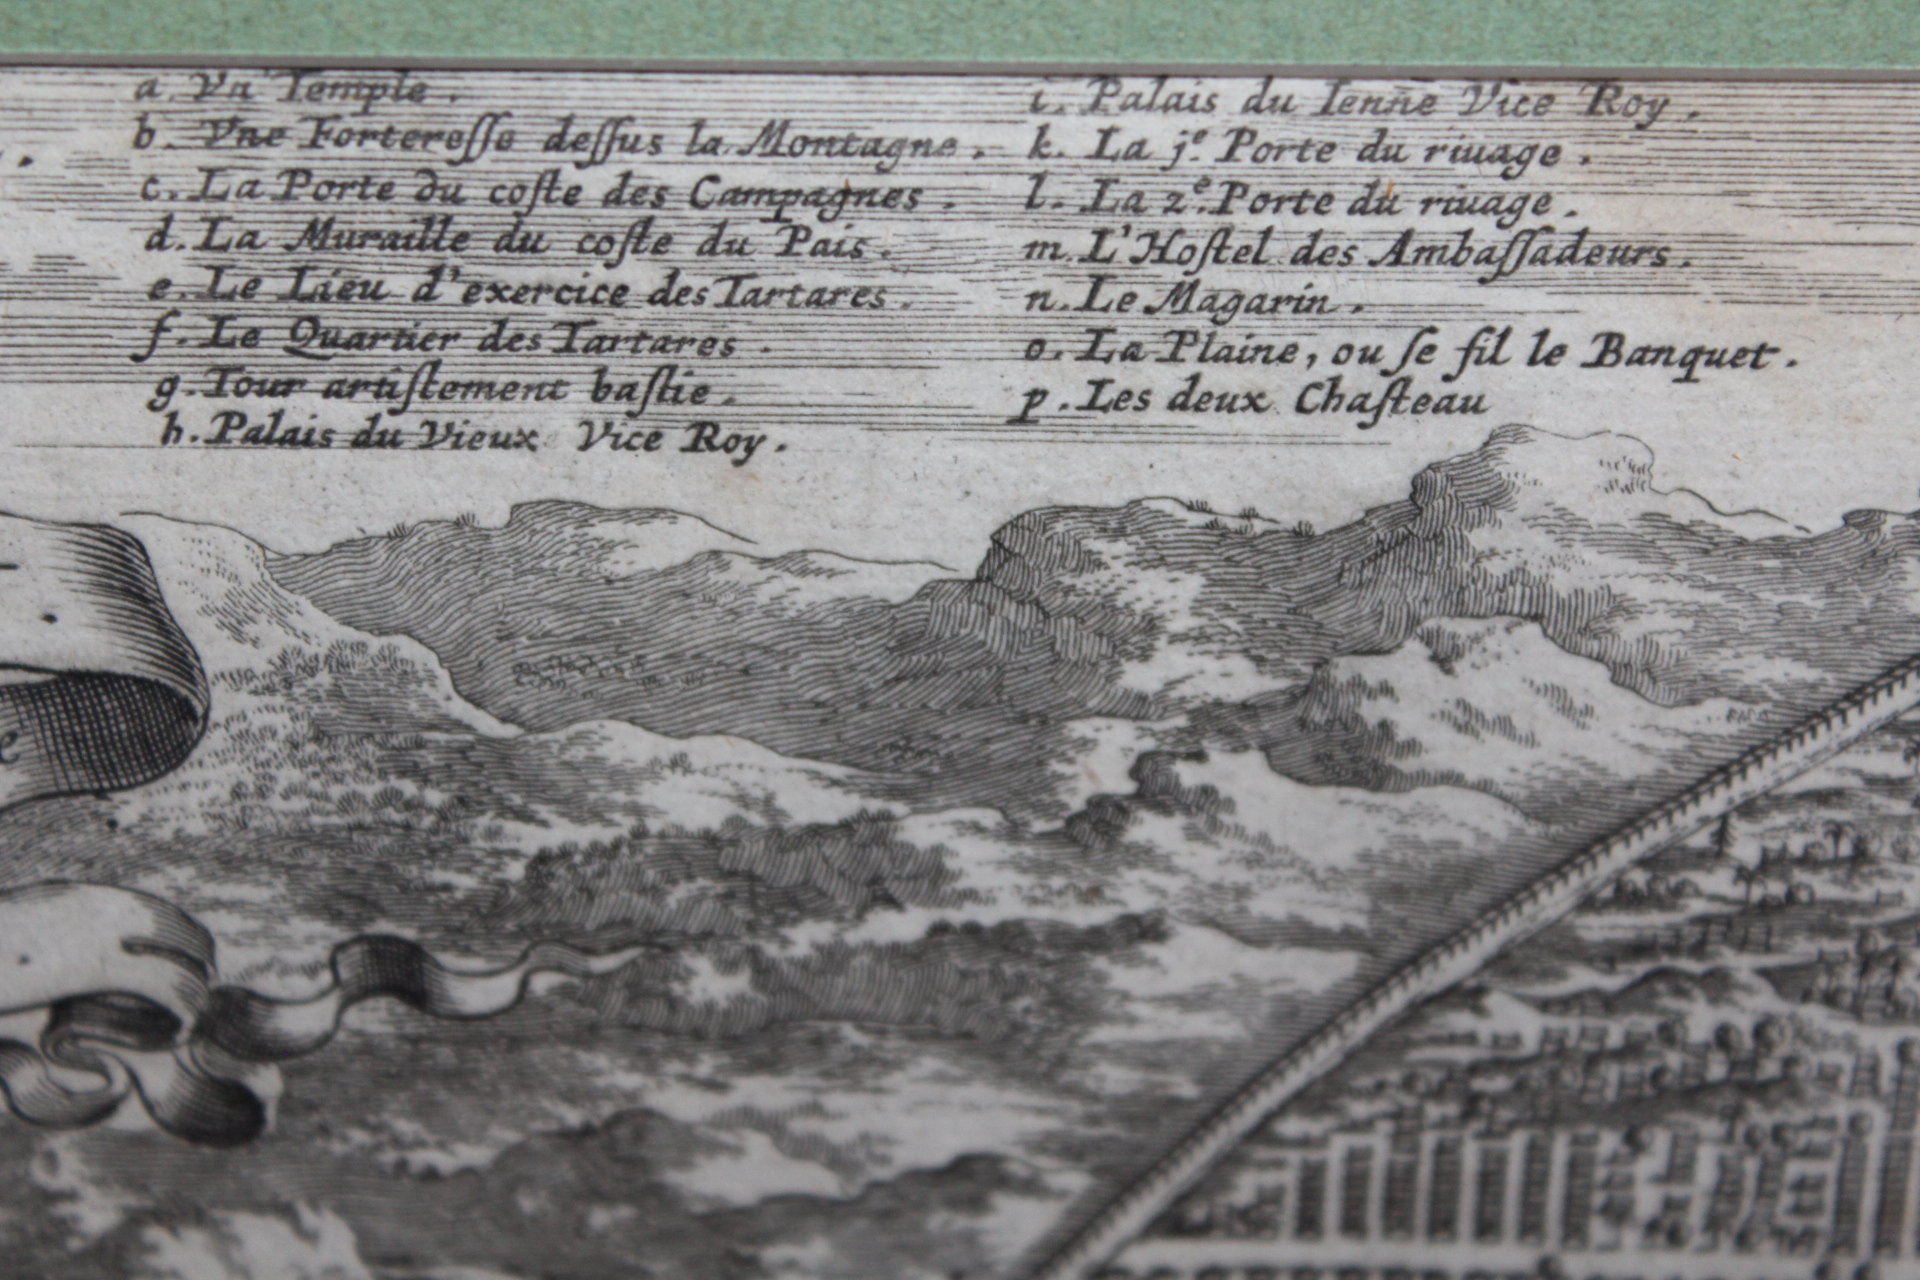 a. Vn Temple.
b. Vne Forteresse dessus la Montagne.
c. La Porte du coste des Campagnes.
d. La Muraille du coste du Pais.
e. Le Lieu d'exercice des Tartares.
f. Le Quartier des Tartares.
g. Tour artistement bastie.
h. Palais du Vieux Vice Roy.
i. Palais du Ienne Vice Roy.
k. La j.e Porte du riuage.
l. La 2.e Porte du riuage.
m. L'Hostel des Ambassadeurs.
n. Le Magarin.
o. La Plaine, ou se fil le Banquet.
p. Les deux Chasteau